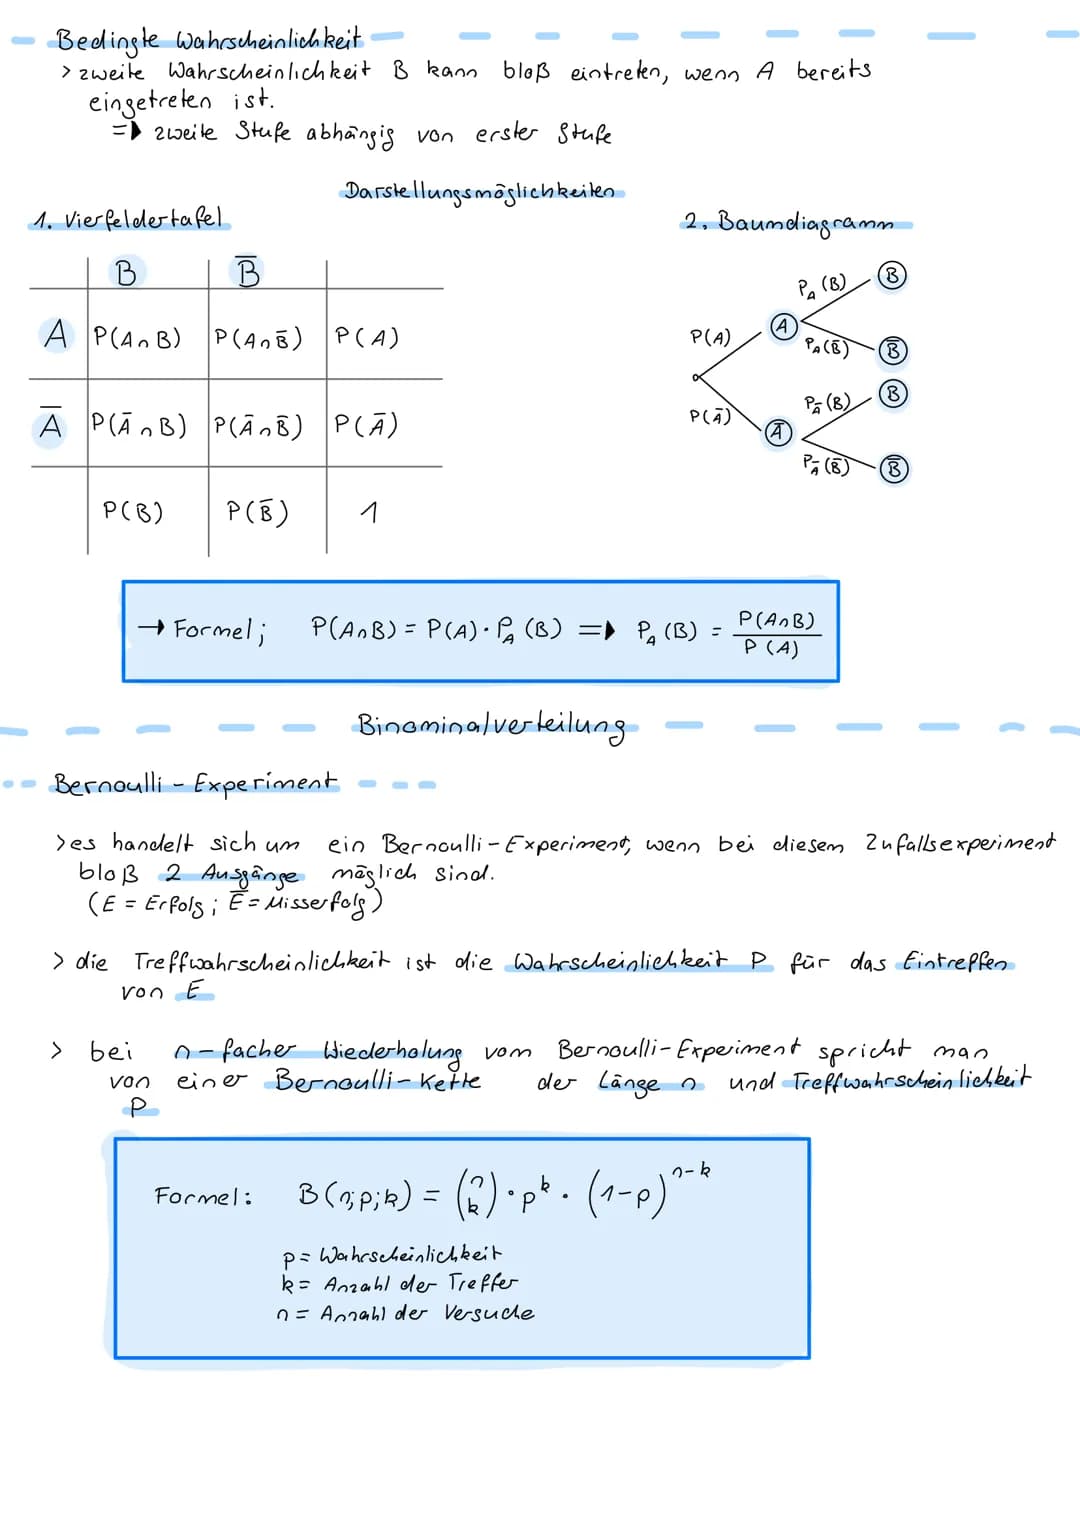 Bedingte Wahrscheinlichkeit
> zweite Wahrscheinlichkeit B kann bloß eintreten, wenn A bereits
eingetreten ist.
=> zweite Stufe abhängig von erster Stufe
Darstellungsmöglichkeiten
1. Vierfeldertafel
2. Baumdiagramm
B B̅
A P(A∩B) P(A∩B̅) P(A)
A̅ P(A̅∩B) P(A̅∩B̅) P(A̅)
P(B) P(B̅) 1
P_A(B) B
P(A) A
P_A(B̅) B̅
P_A̅(B) B
P(A̅) A̅
P_A̅(B̅) B̅
→ Formel; P(A∩B) = P(A) · P_A(B) => P_A(B) = P(A∩B) / P(A)
Binominalverteilung
Bernoulli - Experiment
> es handelt sich um ein Bernoulli - Experiment, wenn bei diesem Zufallsexperiment
bloß 2 Ausgänge möglich sind.
(E = Erfolg ; E̅ = Misserfolg)
> die Treffwahrscheinlichkeit ist die Wahrscheinlichkeit P für das Eintreffen
von E
> bei n - facher Wiederholung vom Bernoulli - Experiment spricht man
von einer Bernoulli - Kette der Länge n und Treffwahrscheinlichkeit
P
Formel: B(n;p;k) = (n k) · p^k · (1-p)^(n-k)
p = Wahrscheinlichkeit
k = Anzahl der Treffer
n = Anzahl der Versuche